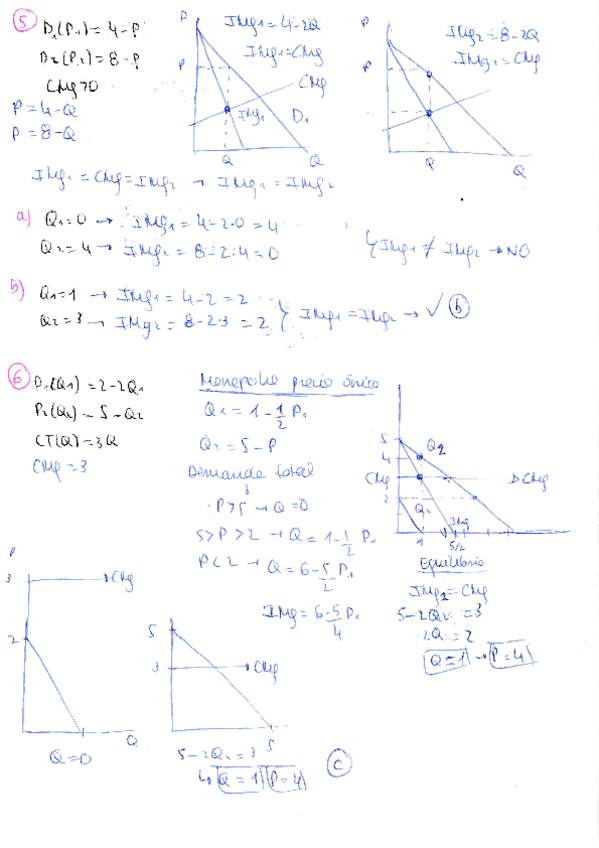 5
D₁(P₁) = 4-P
D₂(P₂) = 8-P
CMg > 0
P = 4-Q
P = 8-Q
P
IMg₁ = 4-2Q
IMg₁ = CMg
P
CMg
IMg₁
D₁
Q
Q
P
IMg₂ = 8-2Q
IMg₂ = CMg
P
Q
Q
IMg₁ = CMg = IMg₂ → IMg₁ = IMg₂
a) Q₁ = 0 → IMg₁ = 4-2·0 = 4
Q₂ = 4 → IMg₂ = 8-2·4 = 0
} IMg₁ ≠ IMg₂ → NO
b) Q₁ = 1 → IMg₁ = 4-2 = 2
Q₂ = 3 → IMg₂ = 8-2·3 = 2 } IMg₁ = IMg₂ → ✓ (b)
6
P₁(Q₁) = 2-2Q₁
P₂(Q₂) = 5-Q₂
CT(Q) = 3Q
CMg = 3
Monopolio precio único
Q₁ = 1 - 1/2 P₁
Q₂ = 5-P
Demanda total
P>5 → Q = 0
5>P>2 → Q = 1 - 1/2 P₁
P<2 → Q = 6 - 5/2 P₁
IMg = 6 - 5/4 P₁
5
4
CMg
2
Q₂
CMg
IMg
1
5/2
Equilibrio
IMg₂ = CMg
5-2Q₂ = 3
2Q = 2
Q = 1 → P = 4
P
3
CMg
2
Q
Q = 0
5
3
CMg
5
5-2Q₂ = 3
↳ Q = 1 P = 4
(c)